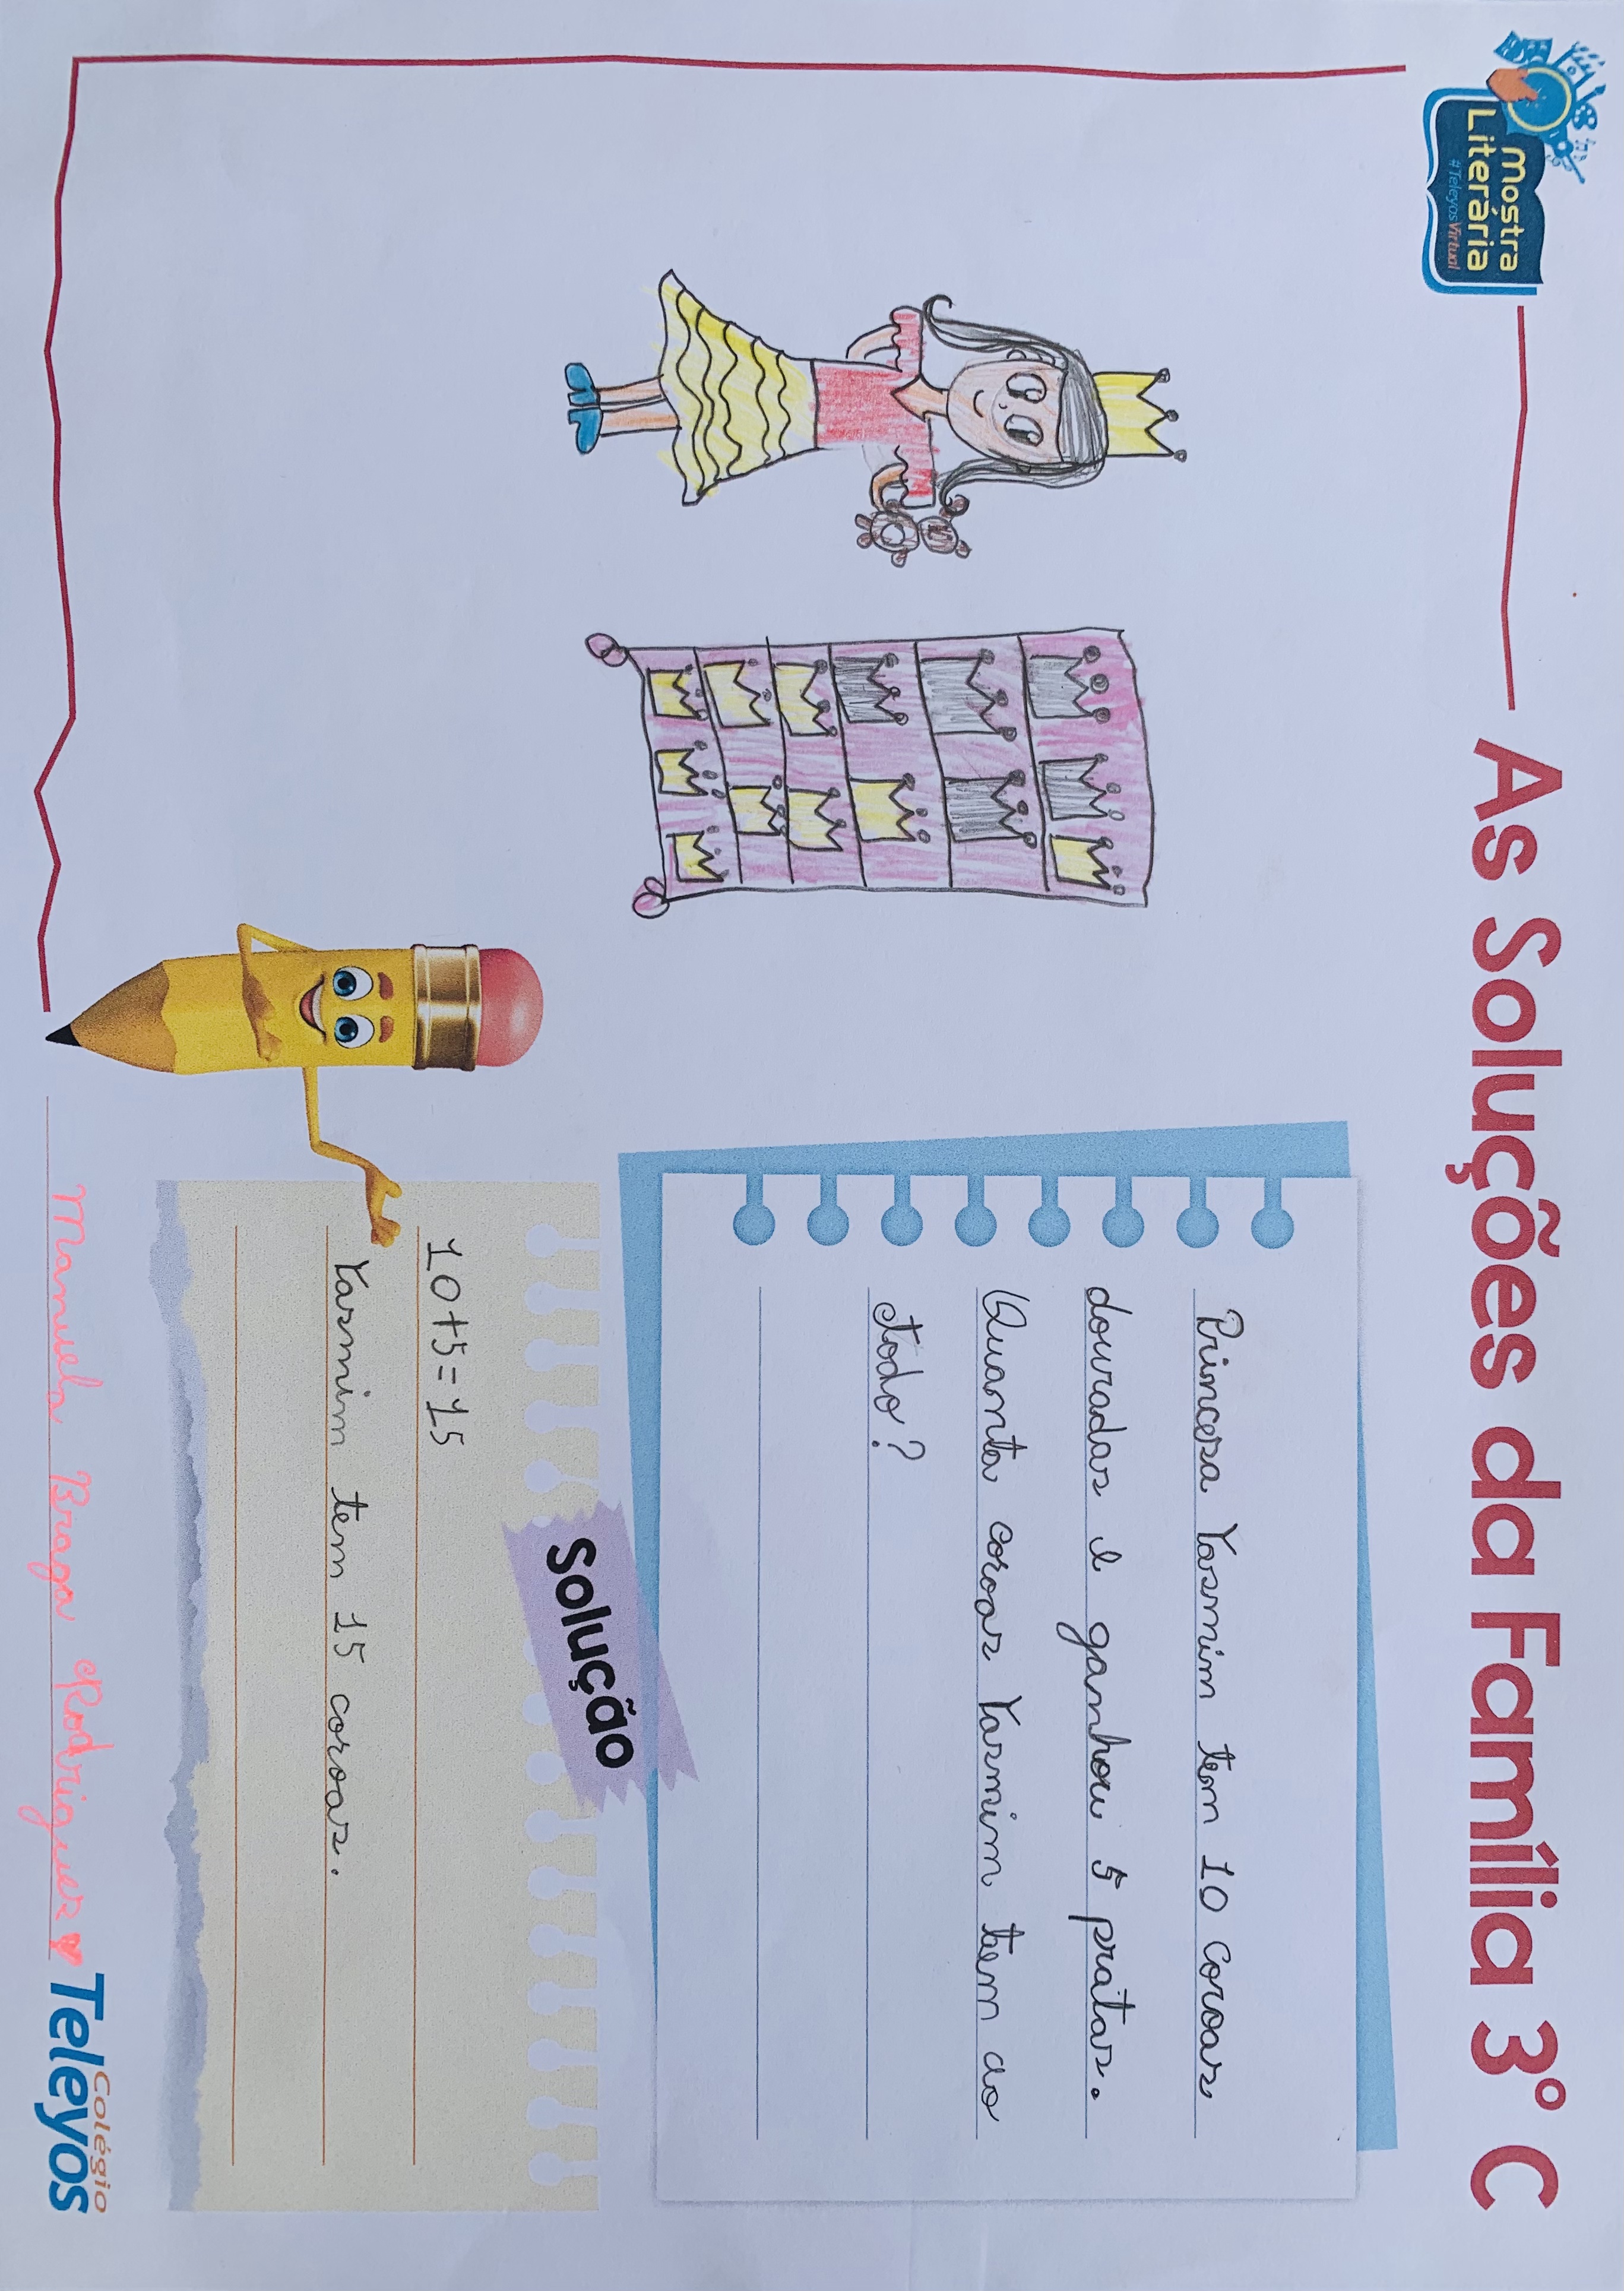 Mostra
Literária
#TeleyosVirtual
As Soluções da Família 3° C
Princesa Yasmim tem 10 coroas
douradas e ganhou 5 pratas.
Quanta coroas Yasmim tem ao
todo?
Solução
10+5=15
Yasmim tem 15 coroas.
Manuela Braga Rodrigues
Colégio
Teleyos